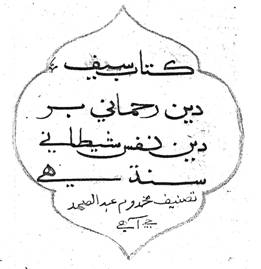 كتاب سيف
دين رحماني بر
دين نفس شيطاني
سنڌ ۾ هي
تصنيف مخدوم عبد الصمد
جي آهي